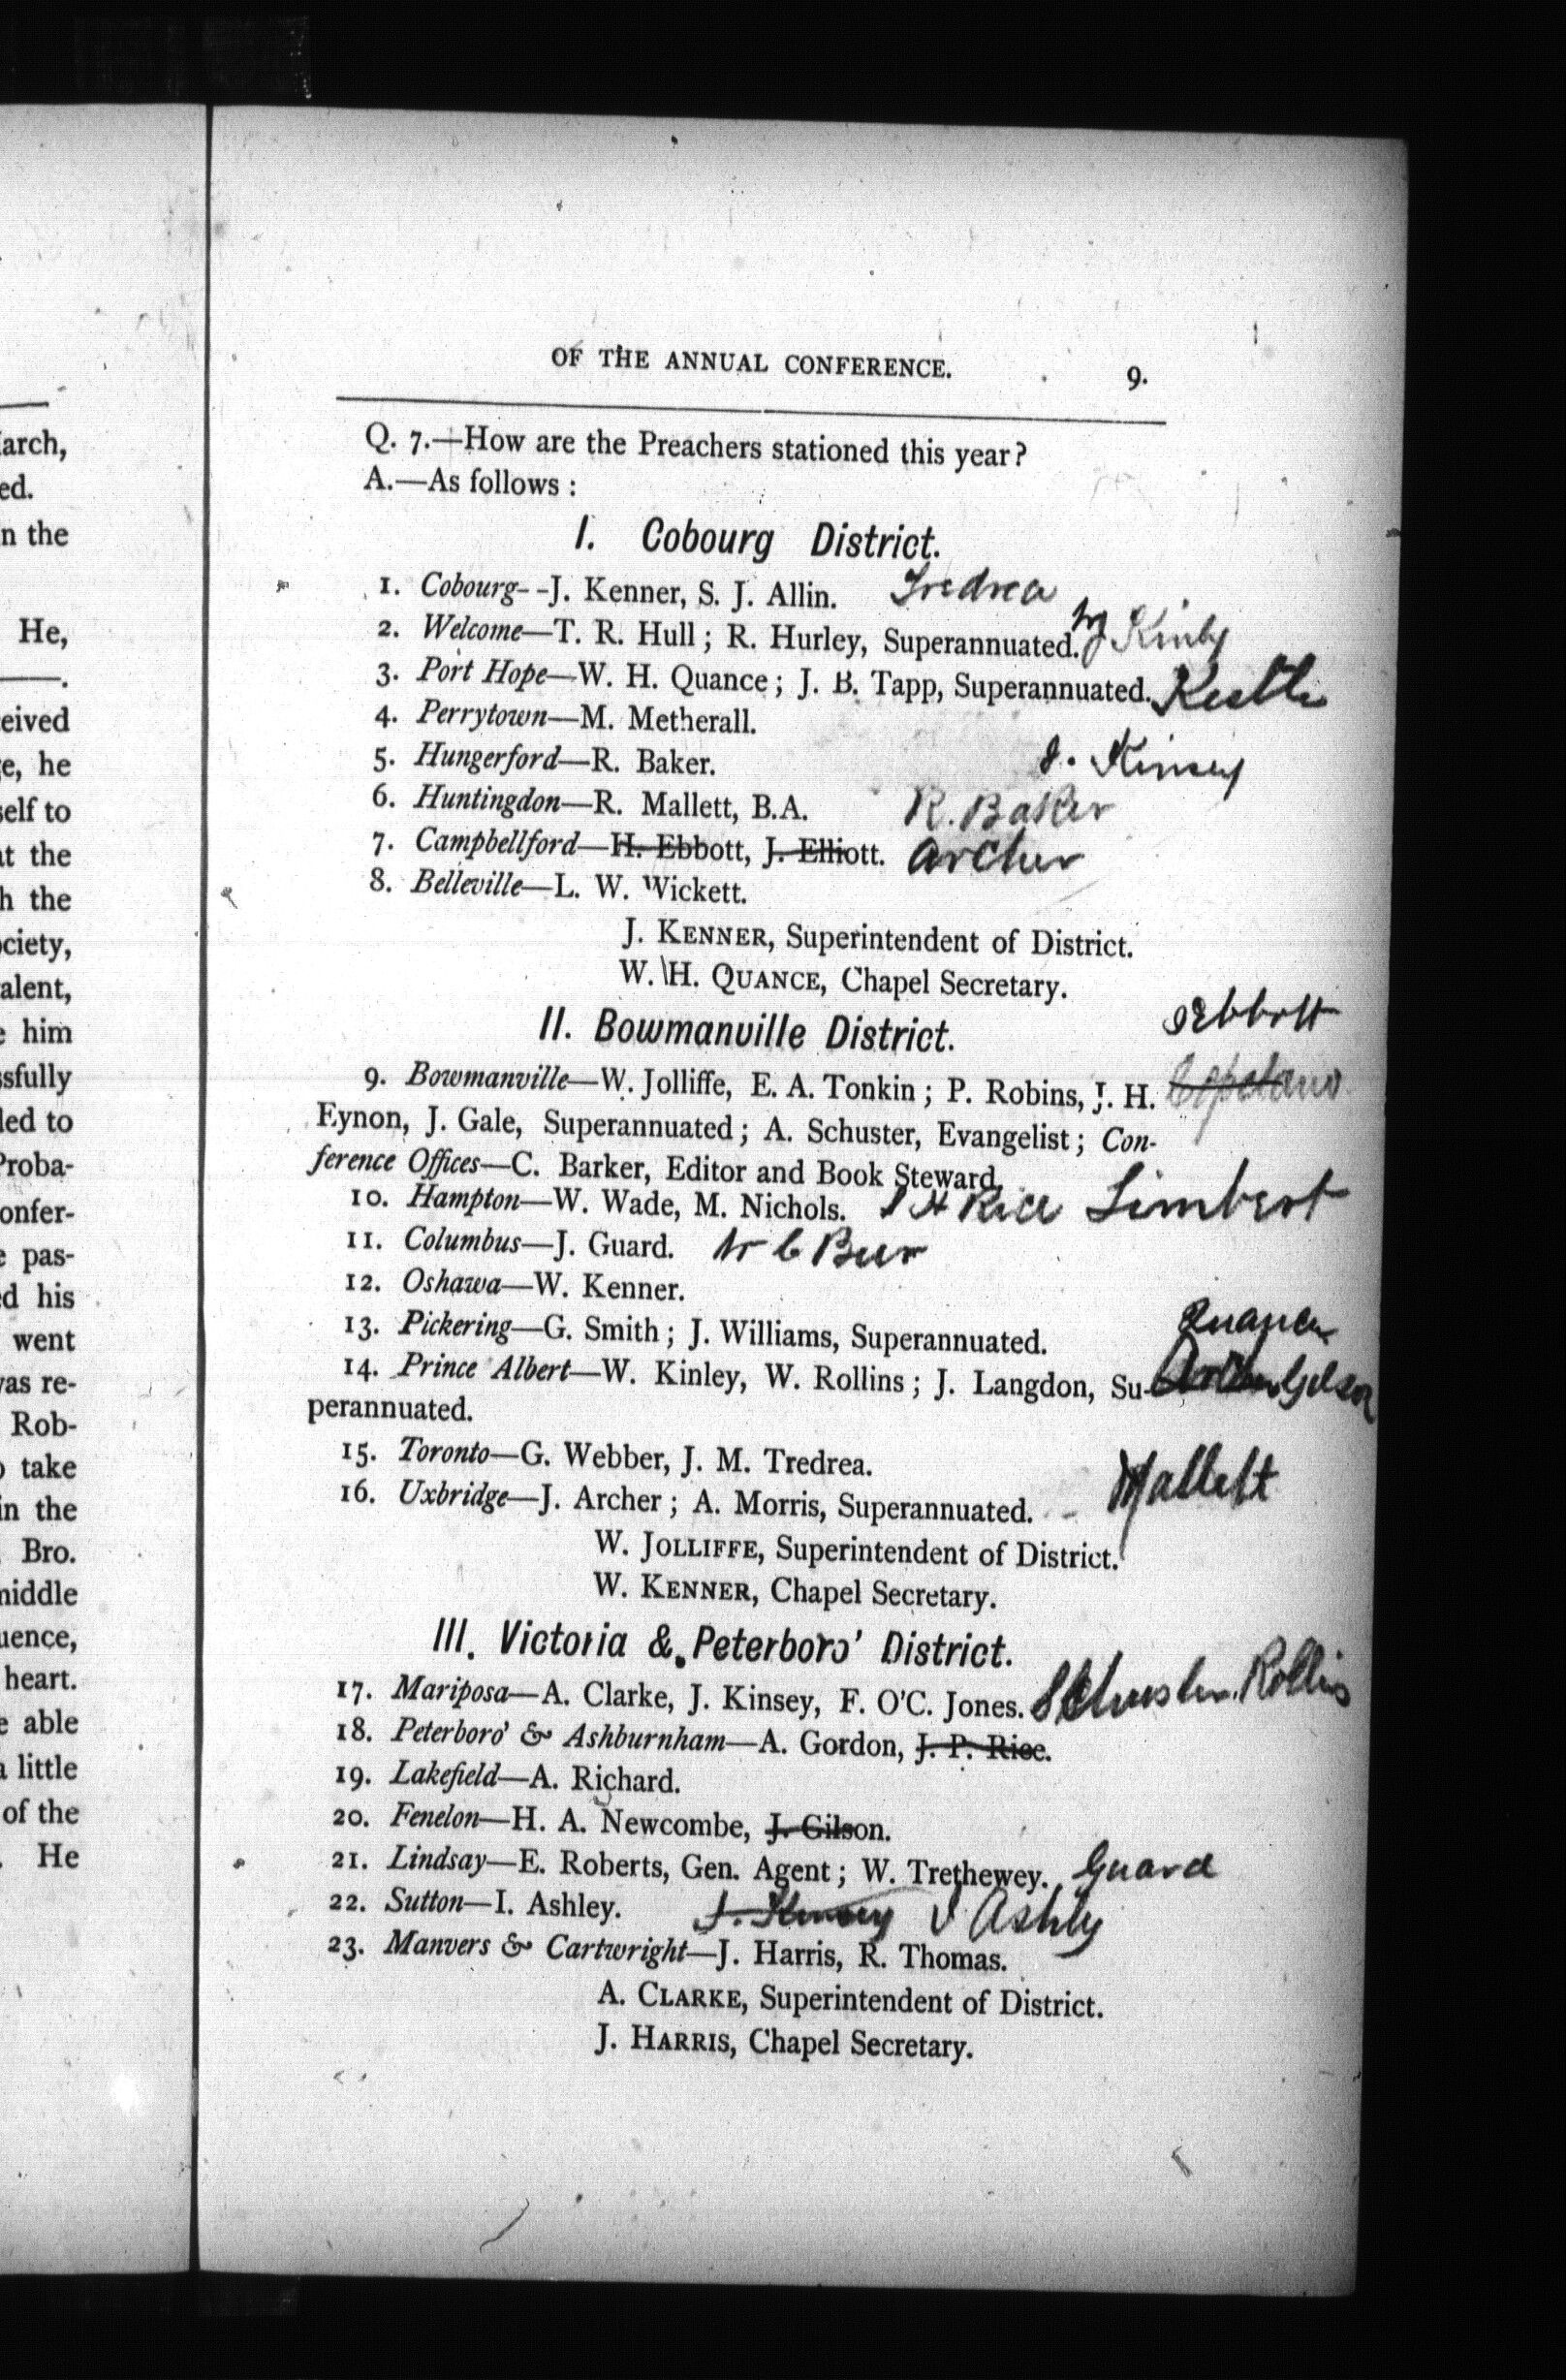 OF THE ANNUAL CONFERENCE. 9.
Q. 7.—How are the Preachers stationed this year?
A.—As follows :
I. Cobourg District.
1. Cobourg--J. Kenner, S. J. Allin. Tredrea
2. Welcome—T. R. Hull ; R. Hurley, Superannuated. W Kinly
3. Port Hope—W. H. Quance ; J. B. Tapp, Superannuated.
4. Perrytown—M. Metherall.
5. Hungerford—R. Baker. J. Kinsey
6. Huntingdon—R. Mallett, B.A. R. Baker
7. Campbellford—H. Ebbott, J. Elliott. Archer
8. Belleville—L. W. Wickett.
J. KENNER, Superintendent of District.
W. H. QUANCE, Chapel Secretary.
II. Bowmanville District. Ebbott
9. Bowmanville—W. Jolliffe, E. A. Tonkin ; P. Robins, J. H. Copeland
Eynon, J. Gale, Superannuated ; A. Schuster, Evangelist ; Con-
ference Offices—C. Barker, Editor and Book Steward.
10. Hampton—W. Wade, M. Nichols. Rice Limbert
11. Columbus—J. Guard. W C Beer
12. Oshawa—W. Kenner.
13. Pickering—G. Smith ; J. Williams, Superannuated. Quance
14. Prince Albert—W. Kinley, W. Rollins ; J. Langdon, Su- Archer Gilson
perannuated.
15. Toronto—G. Webber, J. M. Tredrea.
16. Uxbridge—J. Archer ; A. Morris, Superannuated. Mallett
W. JOLLIFFE, Superintendent of District.
W. KENNER, Chapel Secretary.
III. Victoria & Peterboro' District.
17. Mariposa—A. Clarke, J. Kinsey, F. O'C. Jones. Schuster Rollins
18. Peterboro' & Ashburnham—A. Gordon, J. P. Rice.
19. Lakefield—A. Richard.
20. Fenelon—H. A. Newcombe, J. Gilson.
21. Lindsay—E. Roberts, Gen. Agent ; W. Trethewey. Guard
22. Sutton—I. Ashley. J. Kinsey I Ashly
23. Manvers & Cartwright—J. Harris, R. Thomas.
A. CLARKE, Superintendent of District.
J. HARRIS, Chapel Secretary.
arch,
ed.
n the
He,
eived
e, he
self to
at the
h the
ociety,
alent,
e him
ssfully
led to
Proba-
onfer-
e pas-
ed his
went
was re-
Rob-
o take
in the
Bro.
middle
uence,
heart.
e able
a little
of the
He